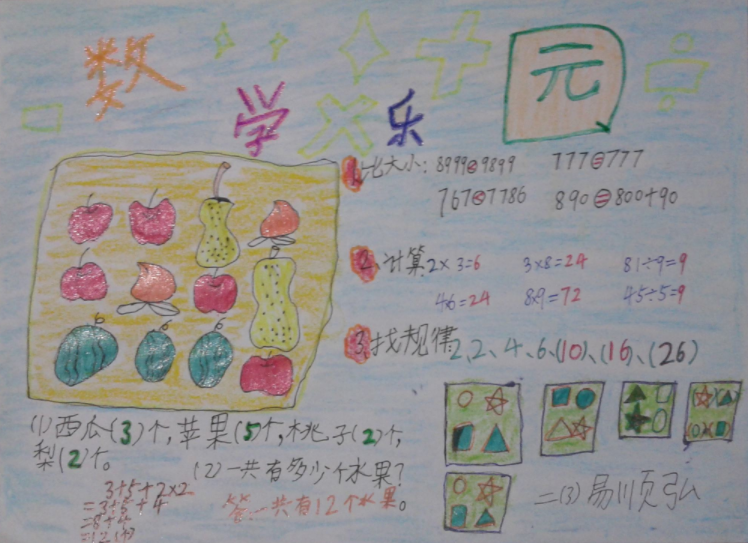 数学乐元
1、比大小：8999<9899 777=777
767<7786 890=800+90
2、计算2×3=6 3×8=24 81÷9=9
4×6=24 8×9=72 45÷5=9
3、找规律2、2、4、6、(10)、(16)、(26)
(1)西瓜(3)个，苹果(5)个，桃子(2)个，
梨(2)个。
(2)一共有多少个水果？
3+5+2×2
=3+5+4
=8+4
=12(个)
答：一共有12个水果。
二(3)易顺弘